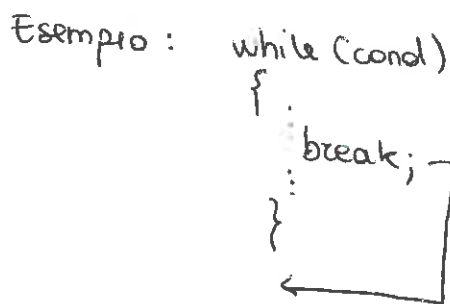 Esempio : while (cond)
{
⋮
break;
⋮
}